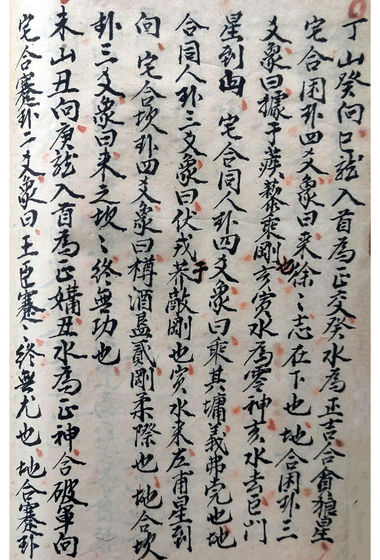 丁山癸向巳龍入首為正交癸水為正吉合貪狼星
宅合困卦四爻象曰来徐々志在下也地合困卦三
爻象曰據于蒺藜乘剛也亥寅水為零神亥水去巨門
星到向宅合同人卦四爻象曰乘其墉義弗克也地
合同人卦三爻象曰伏戎于莽敵剛也寅水来左甫星到
向宅合坎卦四爻象曰樽酒簋貳剛柔際也地合坎
卦三爻象曰来之坎々終無功也
未山丑向庚龍入首為正媾丑水為正神合破軍向
宅合蹇卦二爻象曰王臣蹇々終無尤也地合蹇卦